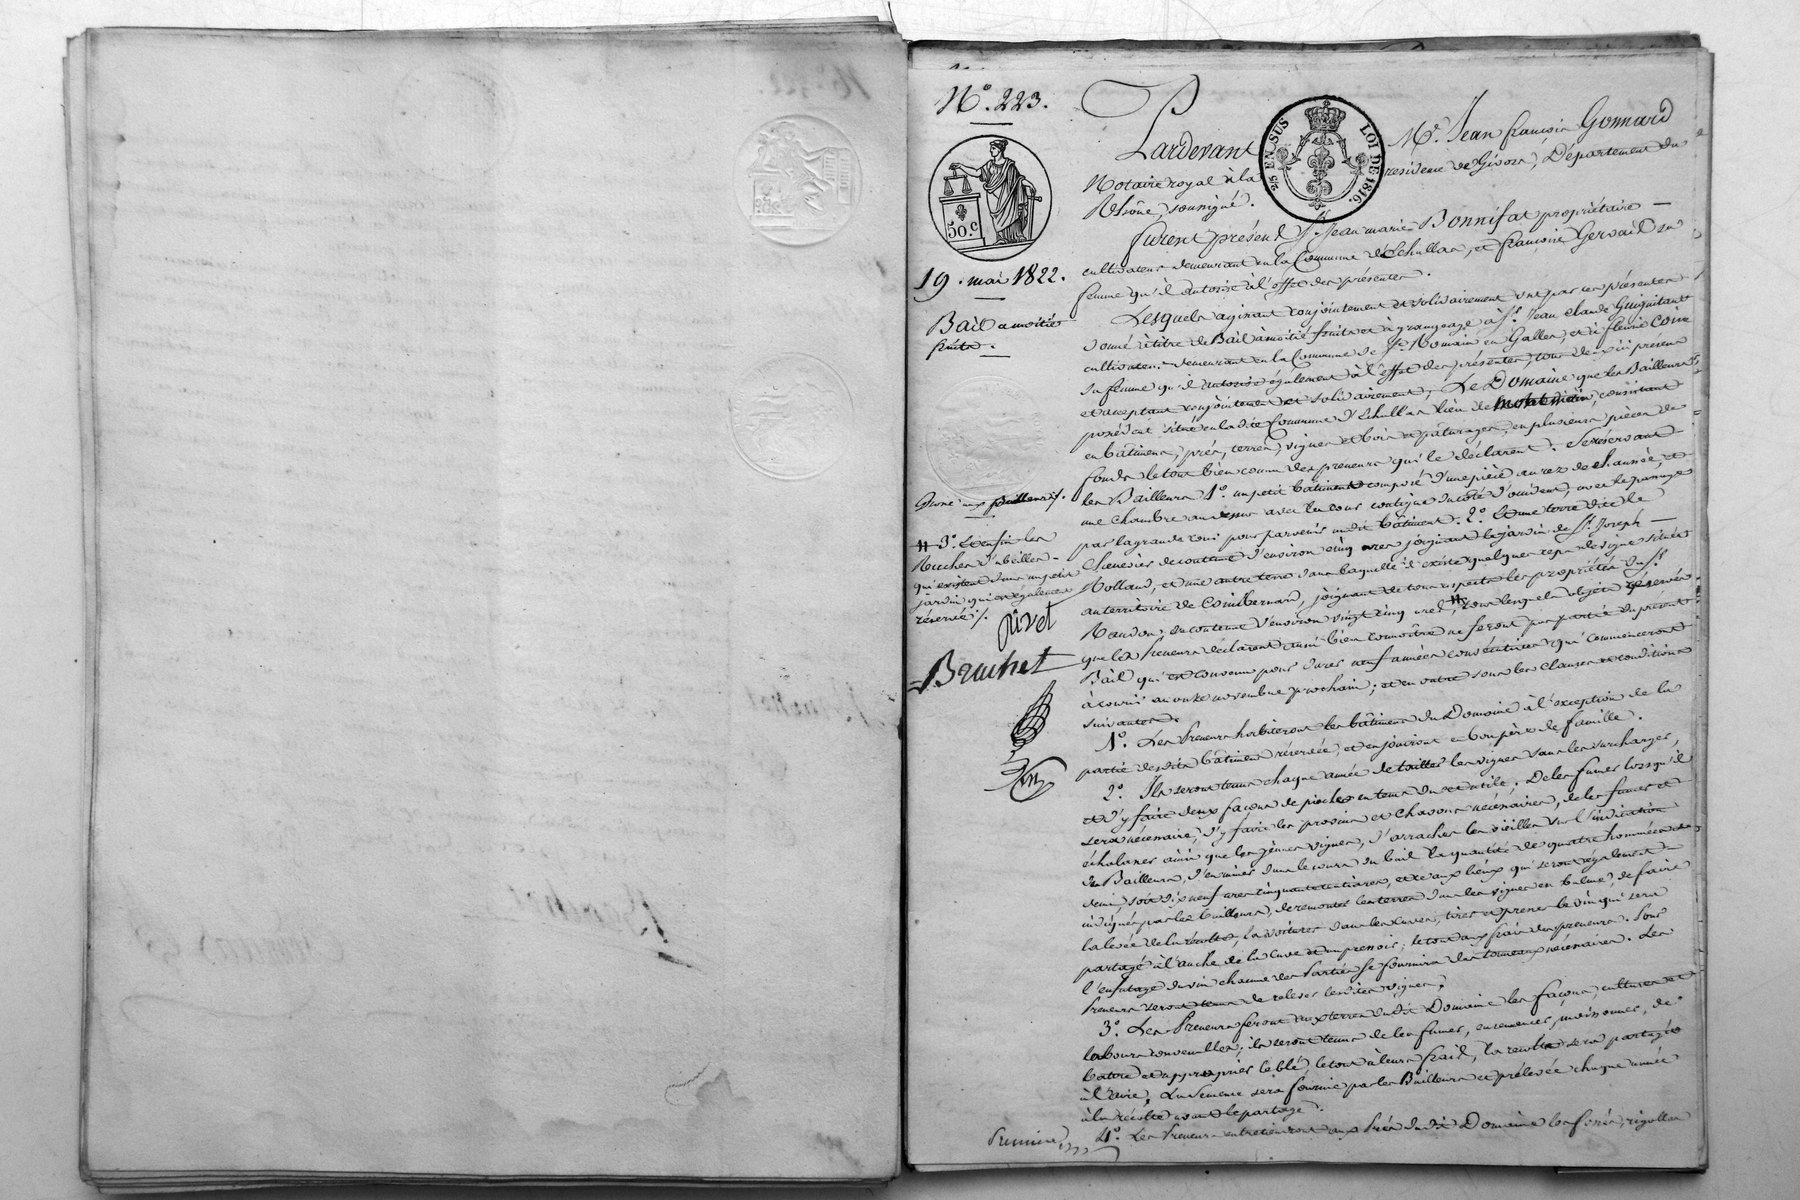 N.° 223.
50.c
19. mai 1822.
Bail a moitié
fruits.
25 EN SUS LOI DE 1816.
Pardevant Me. Jean françois Gonnard
Notaire royal à la résidence de Givors, Département du
Rhône, soussigné.
furent présens Sr. Jean marie Bonnifat propriétaire
cultivateur demeurant en la Commune d'Echallas, et françoise Gervais sa
femme qu'il autorise à l'effet des présentes.
Lesquels agissant conjointement et solidairement ont par ces présentes
donné à titre de Bail à moitié fruits et à grangeage à Sr. Jean Claude Guignitant
cultivateur demeurant en la Commune de St. Romain en Gallex, et à fleurie
sa femme qu'il autorise également à l'effet des présentes, tous deux ici présens
et acceptant conjointement et solidairement; Le Domaine que les Bailleurs
possèdent situé en ladite Commune d'Echallas lieu de consistant
en bâtimens, prés, terres, vignes et bois et pâturages, en plusieurs pièces de
fonds le tout bien connu des preneurs qui le déclarent. Se réservant
les Bailleurs 1°. un petit bâtiment composé d'une pièce au rez de chaussée, et
une chambre au dessus avec les cour contigue du coté d'occident, avec le passage
par la grande cour pour parvenir audit bâtiment. 2°. Et une terre dite le
de contenue d'environ cinq ares joignant le jardin de Sr. Joseph
Rolland, et une autre terre dans laquelle il existe quelques ceps de vigne située
au territoire de Combernard, joignant de tous aspects les propriétés du Sr.
de contenue d'environ vingt cinq ares, tous lesquels objets réservés
que les Preneurs déclarent aussi bien connoître ne feront pas partie du présent
Bail qui est convenu pour durer neuf années consécutives qui commenceront
à courir au onze novembre prochain; et en outre sous les clauses et conditions
suivantes.
1°. Les Preneurs habiteront les bâtimens du Domaine à l'exception de la
partie desdits bâtimens réservée, et en jouiront en bon père de famille.
2°. Ils seront tenus chaque année de tailler les vignes sans les surcharger,
et d'y faire deux façons de pioches en tems dû et utile. De les fumer lorsqu'il
sera nécessaire, d'y faire les provins et chavons nécessaires, de les fumer et
échalasser ainsi que les jeunes vignes, d'arracher les vieilles sur l'indication
des Bailleurs, d'en miner dans le cours du bail la quantité de quatre hommées et
demi, soit dix neuf ares cinquante centiares, et ce aux lieux qui seront également
indiqués par les bailleurs, de remonter les terres dans les vignes en balme, de faire
la levée de la récolte, la voiturer dans les cuves, tirer et presser le vin qui sera
partagé à l'anche de la cuve et du pressoir; le tout aux frais des preneurs. Pour
l'enfutage du vin chacune des Parties se fournira des tonneaux nécessaires. Les
Preneurs seront tenus de relever lesdites vignes.
3°. Les Preneurs feront aux terres dudit Domaine les façons, cultures et
labours convenables; ils seront tenus de les fumer, ensemencer, moissonner, de
battre et approprier le blé, le tout à leurs frais, la recolte sera partagée
à l'aire, La semence sera fournie par les Bailleurs et prélevée chaque année
à la récolte avant le partage.
4°. Les Preneurs entretiendront aux Prés dudit Domaine les fossés, rigolles
aux Bailleurs /.
3°. Et enfin les
Ruches d'abeilles
qui existent dans un petit
jardin qui est également
réservé /.
pivet
Brachet
Premiere